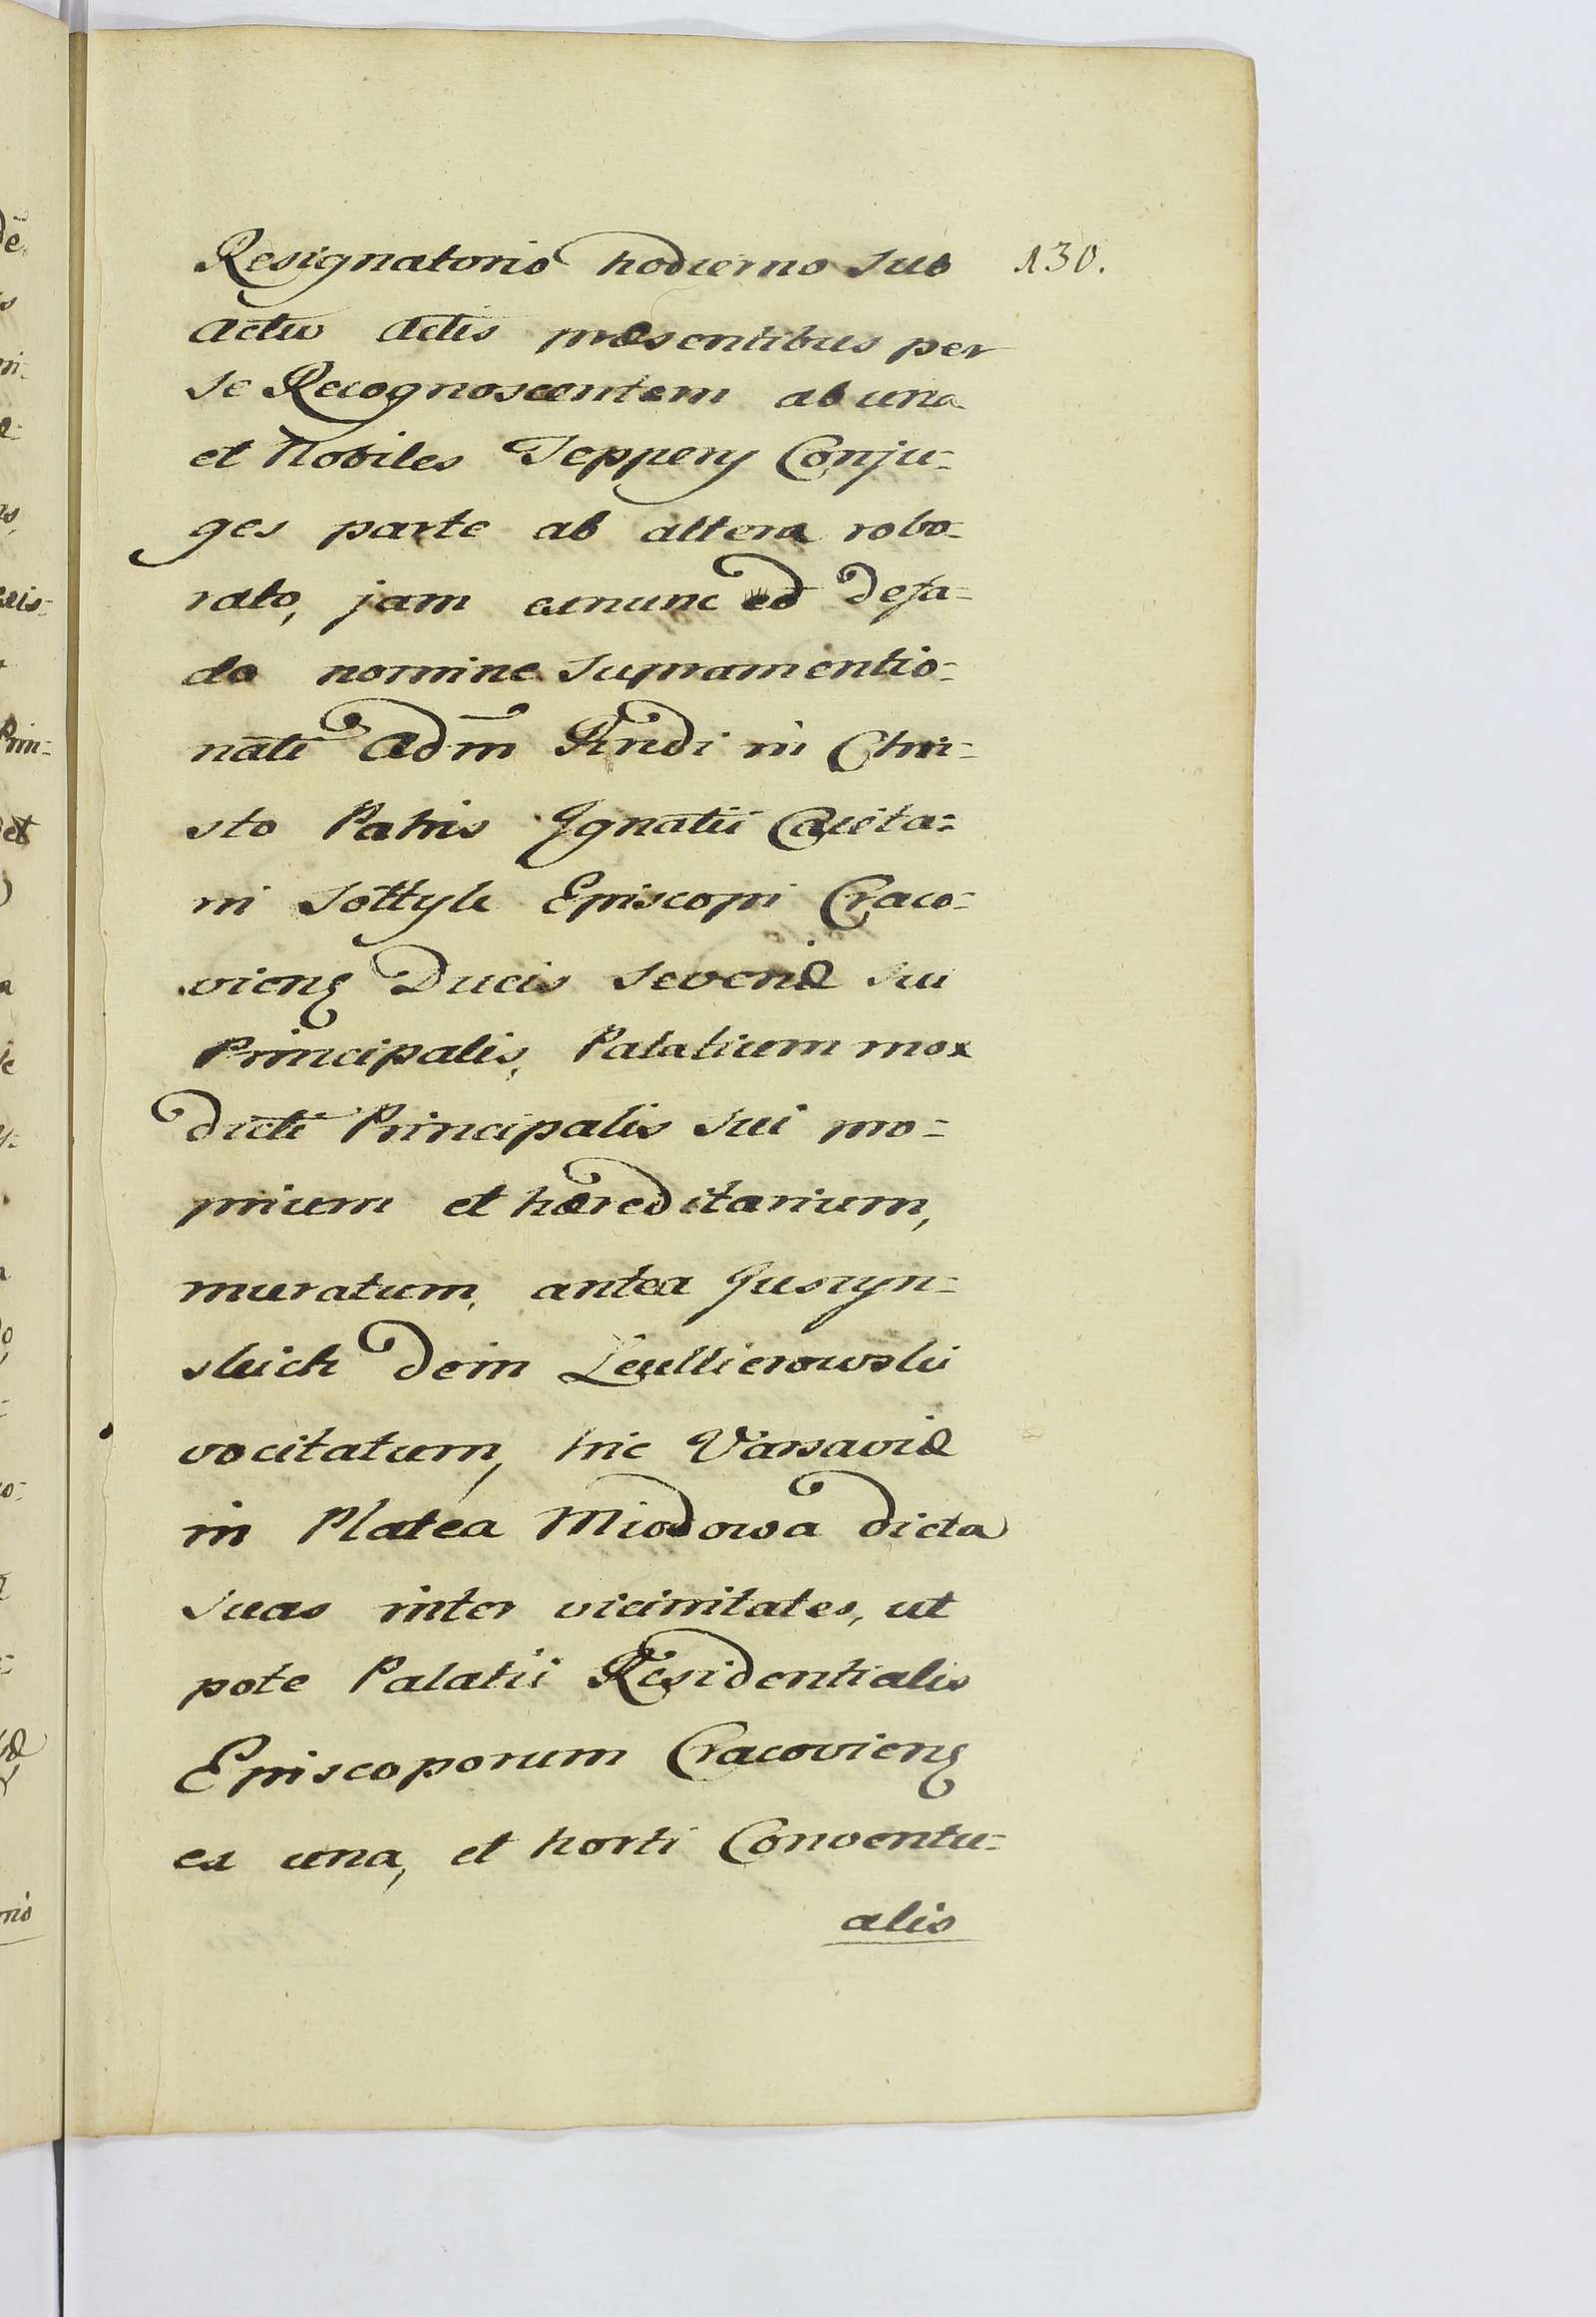 Resignatorio hodierno sub 130.
actu Actis præsentibus per
se Recognoscentem ab una
et Nobiles Teppery Conju=
ges parte ab altera robo=
rato, jam exnunc ed defa=
do nomine supramentio=
nati Adm Rndi in Chri=
sto Patris Ignatii Cajeta=
ni Sołtyk Episcopi Craco=
vieng Ducis Severiæ sui
Principalis, Palatium mox
dicti Principalis sui pro=
prium et hæreditarium,
muratum, antea
dein Leullierowski
vocitatum, hic Varsaviæ
in Platea Miodowa dicta
suas inter vicinitates, ut
pote Palatii Residentialis
Episcoporum Cracovieng
ex una, et horti Conventu=
alis